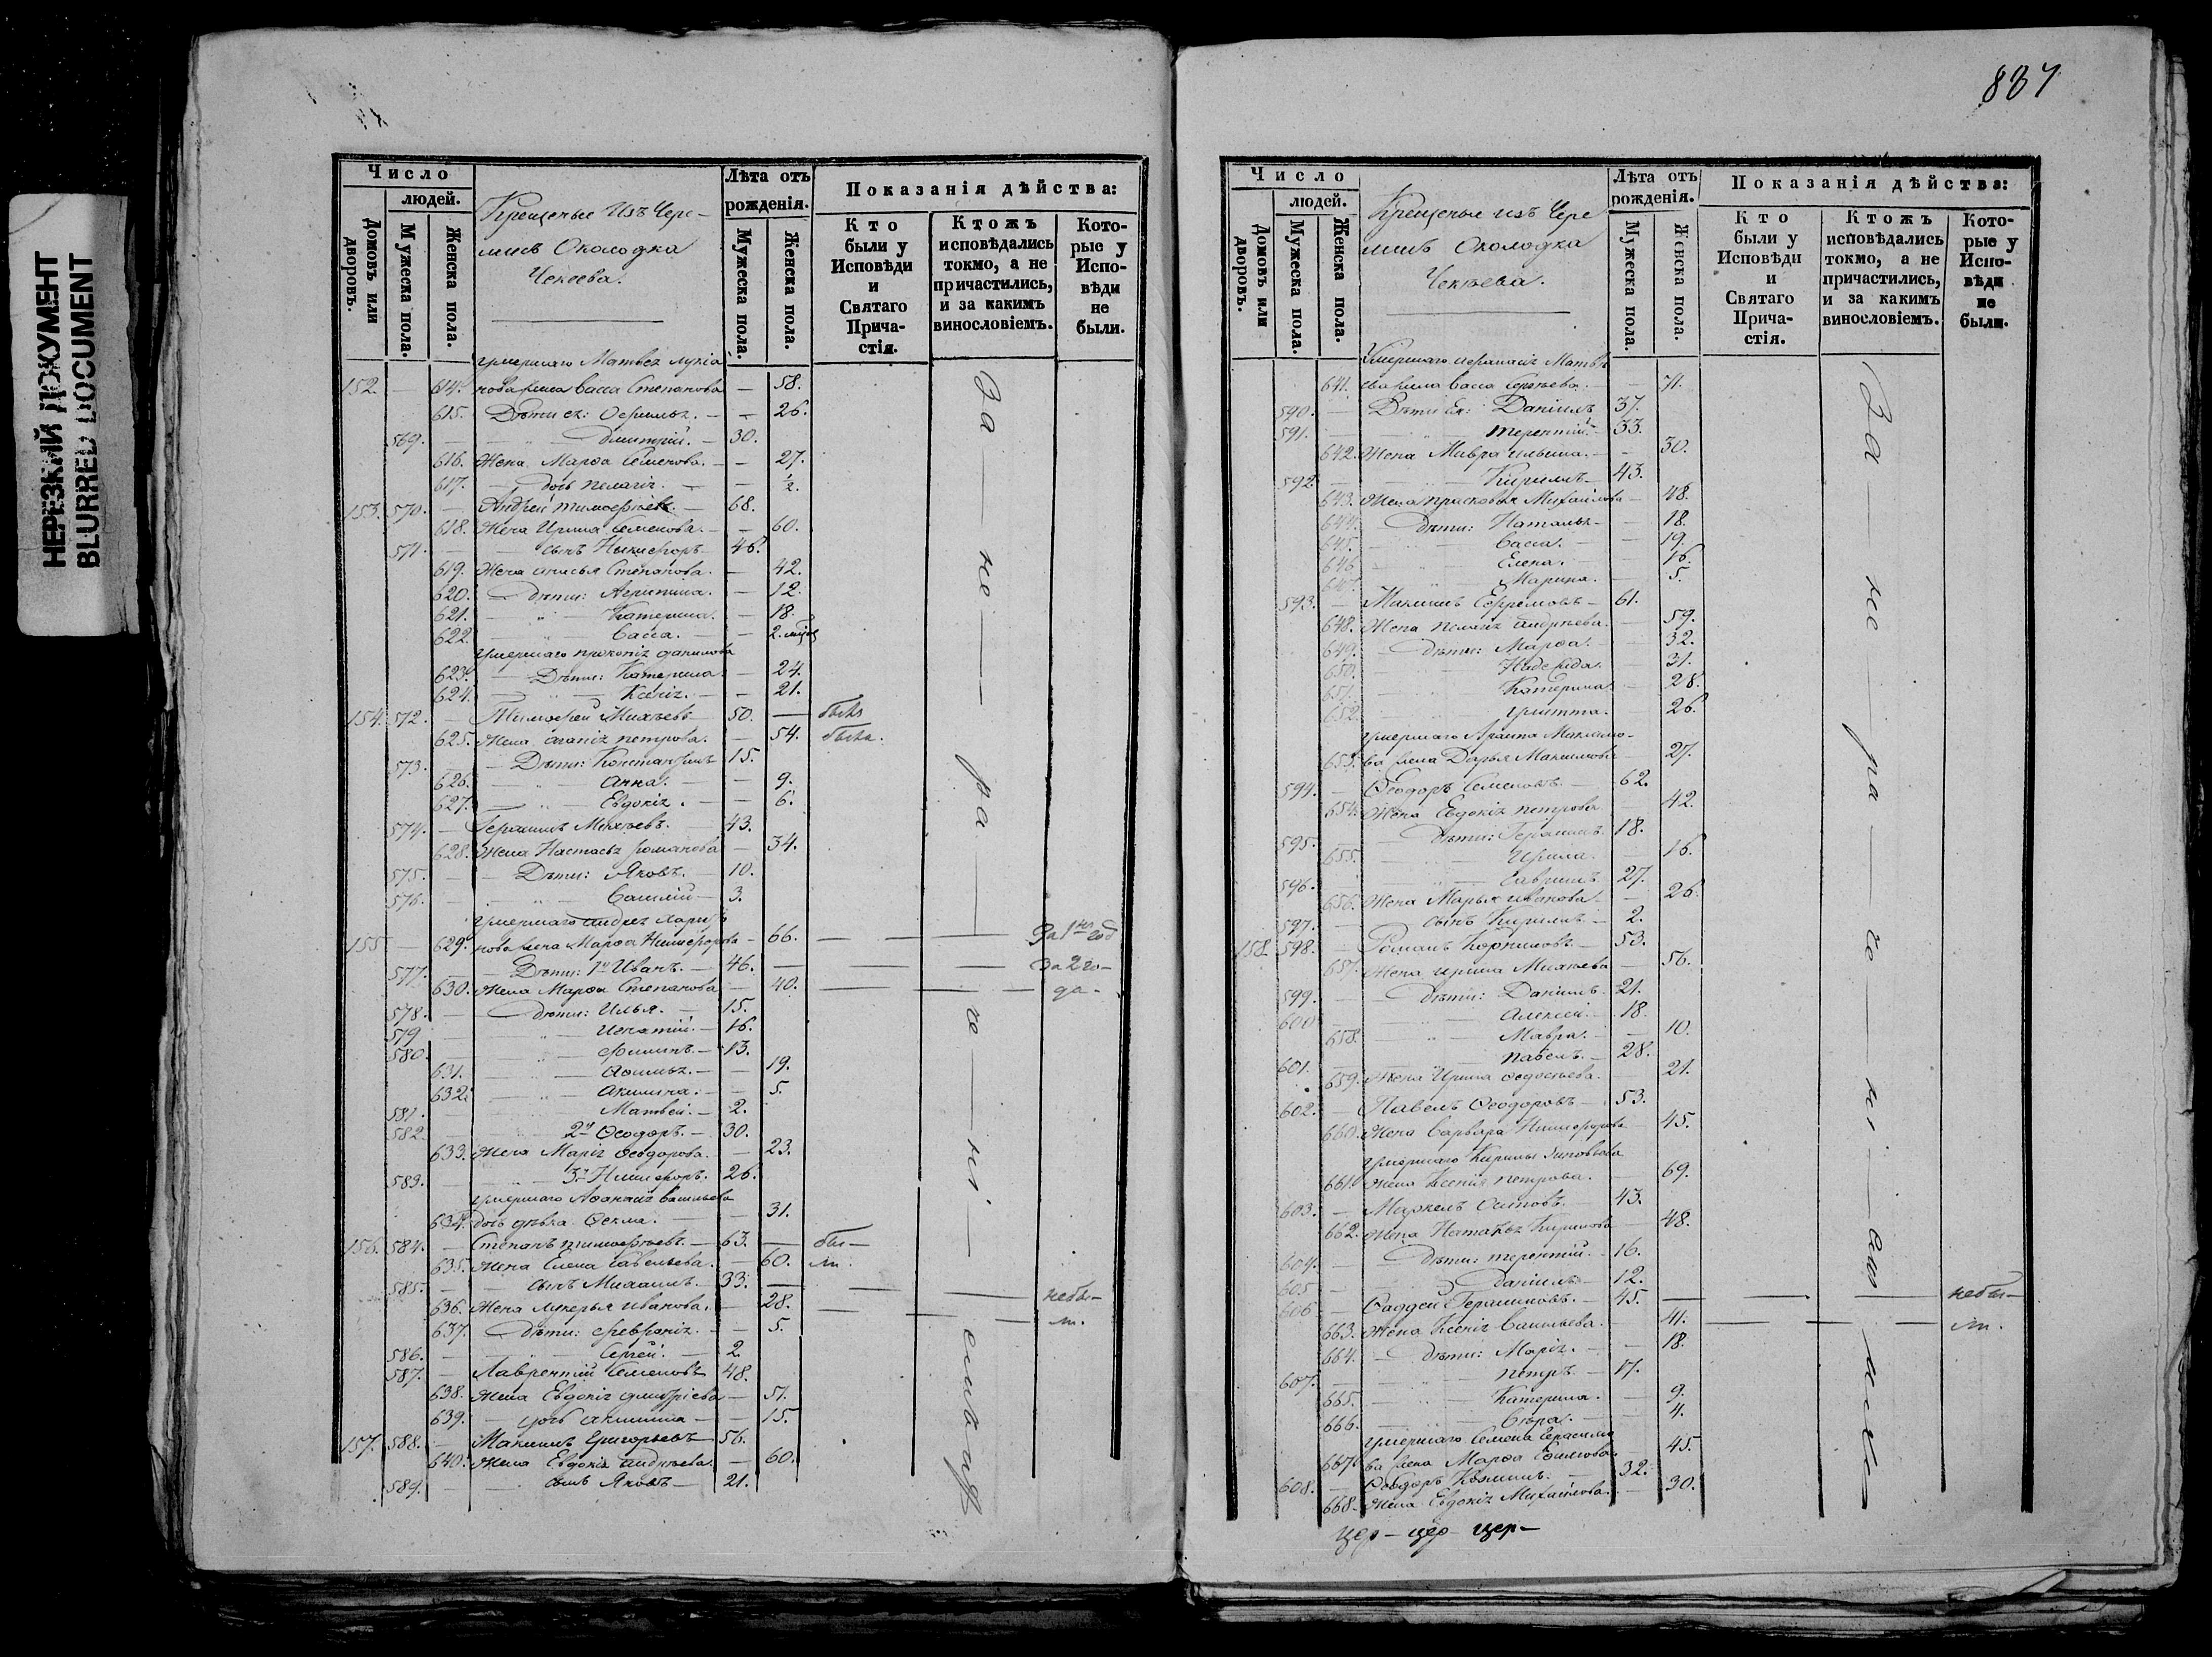 НЕРЕЗКИЙ ДОКУМЕНТ
BLURRED DOCUMENT
Число
людей.
Домовъ или дворовъ.
Мужеска пола.
Женска пола.
Крещеные изъ Чере-
мисъ Околодка
Чекеева.
Лѣта отъ рожденія.
Мужеска пола.
Женска пола.
Показанія дѣйства:
Кто были у Исповѣди и Святаго Прича-стія.
Ктожъ исповѣдались токмо, а не причастились, и за какимъ винословіемъ.
Кото-рые у Испо-вѣди не были.
умершаго Матвея Лукіа
152. — 614. нова жена Васса Степанова — 58.
615. Дѣти ея: — 26.
569. — Дмитрій. — 30.
616. Жена Марѳа Семенова. — 27.
617. — дочь Пелагія. — ½.
153. 570. — Андрей Тимофѣевъ. 68.
618. Жена Ирина Семенова. — 60.
571. — сынъ Никифоръ 46.
619. Жена Анисья Степанова. — 42.
620. — дѣти: Агрипина. — 12.
621. — Катерина. — 18.
622. — Васса. — 2.
умершаго Прокопія Данилова
623. — Дѣти: Катерина. — 24.
624. — Ксенія. — 21.
154. 572. — Тимофей Михѣевъ 50. — былъ
625. Жена Агапія Петрова. — 54. была.
573. — Дѣти: Константинъ 15.
626. — Анна. — 9.
627. — Евдокія. — 6.
574. — Герасимъ Михѣевъ. 43.
628. Жена Настасья Романова — 34.
575. — Дѣти: Яковъ. — 10.
576. — Василій — 3.
умершаго Андрея
155 — 629. нова жена Марѳа Никифорова — 66. — За 1 годъ
577. — Дѣти: 1й Иванъ. — 46. — За 2 го-
630. Жена Марѳа Степанова — 40. — да.
578. — дѣти: Илья. — 15.
579 — Игнатій. — 16.
580. — Филипъ. — 13.
631. — — 19.
632. — Акилина. — 5.
581. — Матвей. — 2.
582. — 2й Ѳеодоръ. — 30.
633. Жена Марія Ѳеодорова. — 23.
583. — 3й Никифоръ. 26.
умершаго Аѳанасія Васильева
634. дочь дѣвка Ѳекла. — 31.
156. 584. — Степанъ Тимофѣевъ. — 63. — бы-
635. Жена Елена Савельева. — 60. ли.
585. — сынъ Михаилъ. — 33. — небы-
636. Жена Лукерья Иванова. — 28. — ли.
637. дѣти: Февронія. — 5.
586. — Сергей. — 2.
587. — Лаврентій Семеновъ 48.
638. Жена Евдокія Дмитріева — 51.
639. — дочь Акилина — 15.
157. 588. — Максимъ Григорьевъ 56.
640. Жена Евдокія Андреева. — 60.
589. — сынъ Яковъ — 21.
За — не — ра — че — ні — емъ
837
Число
людей.
Домовъ или дворовъ.
Мужеска пола.
Женска пола.
Крещеные изъ Чере
мисъ Околодка
Чекѣева.
Лѣта отъ рожденія.
Мужеска пола.
Женска пола.
Показанія дѣйства:
Кто были у Исповѣди и Святаго Прича-стія.
Ктожъ исповѣдались токмо, а не причастились, и за какимъ винословіемъ.
Кото-рые у Испо-вѣди не были.
Умершаго Афанасія Матвѣ
641. ева жена Васса Сергѣева. — 71.
590. — Дѣти Ея: Даніилъ 37.
591. — Терентій. — 33.
642. Жена Мавра Ильина. — 30.
592. — Кирилъ. — 43.
643. Жена Прасковья Михайлова — 48.
644. — дѣти: Наталья — 18.
645. — Васса. — 19.
646. — Елена. — 16.
647. — Марина. — 5.
593. — Михаилъ Ефремовъ — 61.
648. Жена Пелагія Андрѣева. — 59.
649. — дѣти: Марѳа. — 32.
650. — Надежда. — 31.
651. — Катерина — 28.
652. — — 26.
умершаго Максимо-
653. ва жена Дарья Максимова 27.
594. — Ѳеодоръ Семеновъ. — 62.
654. Жена Евдокія Петрова — 42.
595. — дѣти: Герасимъ. 18.
655. — Ирина. — 16.
596. — Гаврилъ. 27.
656. Жена Марья Иванова. — 26.
597. — сынъ Кирилъ. — 2.
158. 598. — Романъ Корниловъ — 53.
657. Жена Ирина Михѣева — 56.
599. — дѣти: Даніилъ. 21.
600. — Алексей. — 18.
658. — Мавра. — 10.
601. — Павелъ. — 28.
659. Жена Ирина Ѳедосеева. — 21.
602. — Павелъ Ѳеодоровъ — 53.
660. Жена Варвара Никифорова — 45.
умершаго Кирилы Зиновьева
661. Жена Ксенія Петрова. — 69.
603. — Маркелъ Осиповъ. — 43.
662. Жена Наталья Кирилова — 48.
604. — дѣти: Терентій. — 16.
605 — Даніилъ. — 12.
606 — Ѳаддей Герасимовъ. — 45. — небы-
663. Жена Ксенія Васильева. — 41. — ли.
664. — дѣти: Марія. — 18.
607. — Петръ — 17.
665. — Катерина. — 9.
666. — Вѣра. — 4.
умершаго Семена Герасимо
667. ва жена Марѳа — 45.
608. — Ѳеодоръ Козминъ. — 32.
668. Жена Евдокія Михайлова. — 30.
За — не — ра — че — ні — емъ
цер — цер — цер —